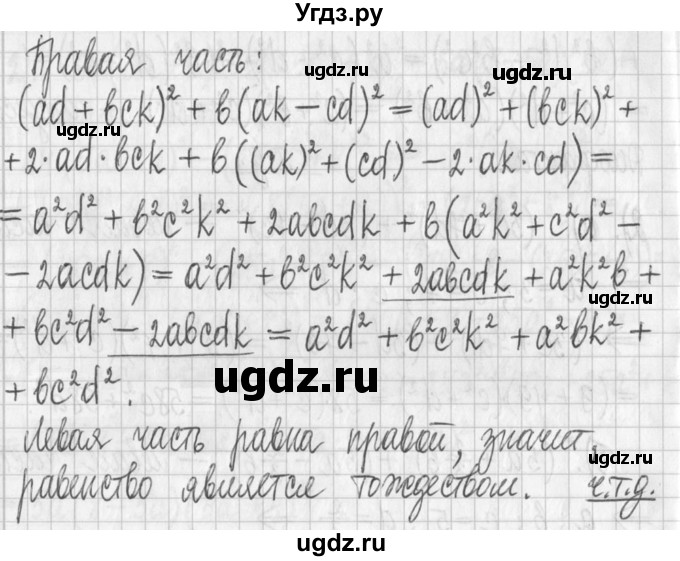 Угдз.ру
Правая часть:
ugdz.ru
ugdz.ru
(ad + bck)² + b(ak − cd)² = (ad)² + (bck)² +
ugdz.ru
ugdz.ru
+ 2·ad·bck + b((ak)² + (cd)² − 2·ak·cd) =
= a²d² + b²c²k² + 2abcdk + b(a²k² + c²d² −
− 2acdk) = a²d² + b²c²k² + 2abcdk + a²k²b +
ugdz.ru
+ bc²d² − 2abcdk = a²d² + b²c²k² + a²bk² +
ugdz.ru
+ bc²d².
Левая часть равна правой, значит,
ugdz.ru
равенство является тождеством. ч.т.д.
ugdz.ru